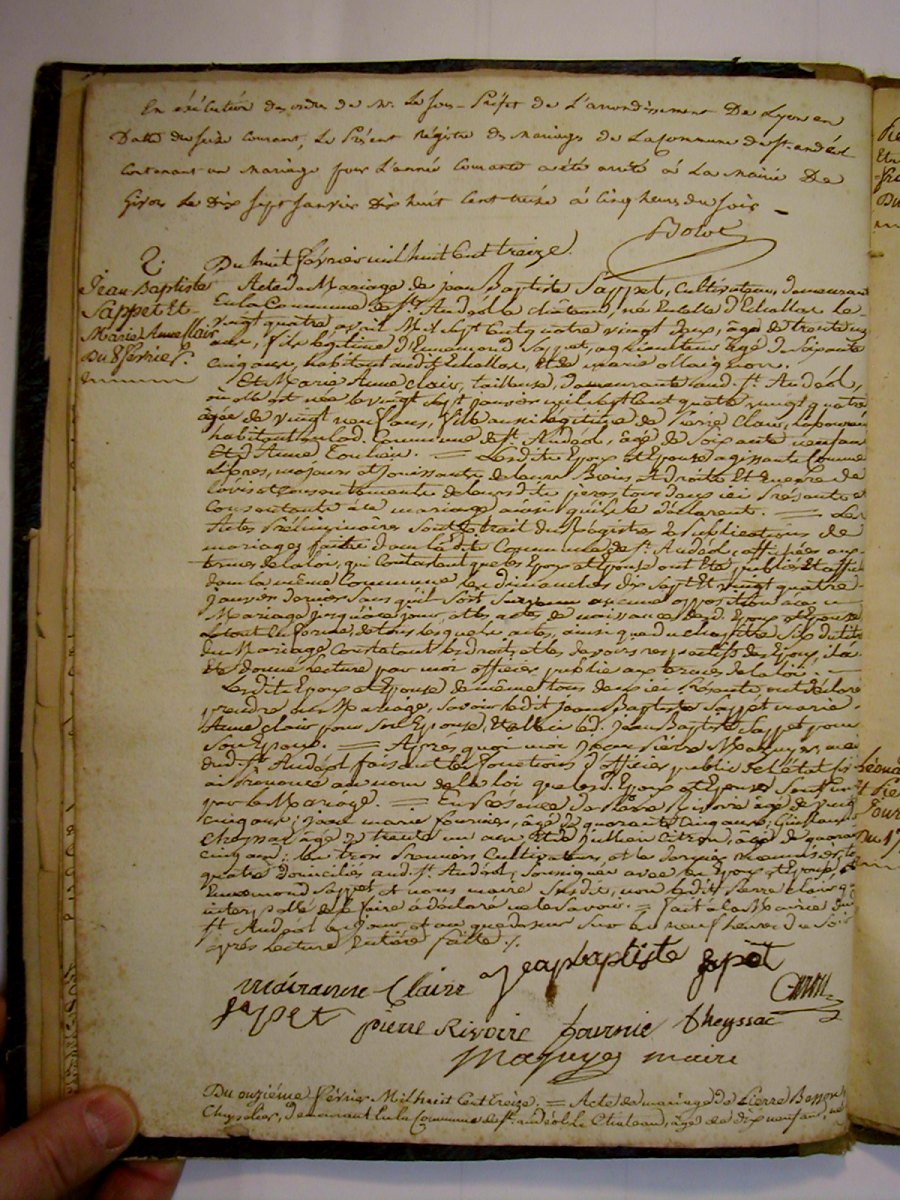 En éxécution des ordres de Mr. Le Sous-Préfet de L'arrondissement De Lyon en
Datte du seize courant, Le Présent régistre des mariages de La Commune de St. andéol
Contenant un mariage pour L'année Courante a été arrêté à La Mairie De
Givors Le Dix Sept Janvier Dix huit Cent treize à Cinq heures du soir
Bolot
2.
Jean Baptiste
Sappet Et
Marie Anne Clair
Du 8 février.
Du huit février mil huit Cent treize.
Acte de Mariage de jean Baptiste Sappet, Cultivateur, demeurant
En la Commune de St. Andéol le château, né En celle d'Echallas Le
vingt quatre avril Mil Sept Cent quatre vingt deux, âgé de trente
ans, fils légitime d'Ennemond Sappet, agriculteur âgé de Soixante
Cinq ans, habitant audit Echallas, et de marie ollaignon.
Et Marie Anne Clair, tailleuse, demeurante aud. St. Andéol,
où elle est née le vingt Sept janvier mil Sept Cent quatre vingt quatre
âgée de vingt neuf ans, fille aussi légitime de Pierre Clair,
habitant En lad. Commune de St. Andéol, âgé de Soixante neuf ans
Et d'Anne. Lesdits Epoux Et Epouse agissants Comme
Libres, majeurs et jouissants de leurs Biens et droits Et Encore de
l'avis et Consentements de leursdits pères tous deux ici Présents et
Consentants à ce mariage ainsi qu'ils le déclarent. = Les
Actes Préliminaires Sont Extrait des Régistres de Publications de
mariages faites dans ladite Commune de St. Andéol, affichées aux
termes de la loi, qui Constatent que les Epoux et Epouse ont Eté publiés Et affichés
dans la même Commune les dimanches dix Sept Et vingt quatre
Janvier dernier Sans qu'il Soit Survenu aucune opposition au
Mariage jusqu'à ce jour, et les actes de naissances desd. Epoux et Epouse
Le tout En forme, de tous lesquels actes, ainsi que du chapitre Six du titre
du Mariage Constatant les droits et les devoirs respectifs des Epoux, il a
Eté donné lecture par moi officier public aux termes de la loi.
Lesdits Epoux et Epouse de même tous deux ici Présents, ont déclaré
prendre en Mariage, Savoir ledit Jean Baptiste Sappet marie
Anne Clair pour Son Epouse, Et celle ci led. Jean Baptiste Sappet pour
Son Epoux. = Après quoi moi Maguyes, maire
dud. St. Andéol faisant les fonctions d'officier public de l'état
ai Prononcé au nom de la loi que lesd. Epoux et Epouse Sont unis
par le Mariage. = En Présence de Pierre Rivoire âgé de vingt
Cinq ans; jean marie fournier, âgé de quarante Cinq ans;
Cheyssac âgé de trente un ans Et de Jullien Citron, âgé de quarante
cinq ans; les trois Premiers Cultivateurs, et le dernier
quatre domiciliés aud. St. Andéol, Soussignés avec les Epoux et Epouse,
Ennemond Sappet et nous maire Susdit, non ledit Pierre Clair
interpellé de le faire a déclaré ne le Savoir. = fait à la Mairie dud.
St. Andéol les jour et an que dessus Sur les neuf heures du Soir
après Lecture Entière faite.
mairanne Claire Jean baptiste Sapet
Sapet pierre Rivoire fournié Cheyssac
Maguyes maire
Du onzième février Mil huit Cent Treize, = Acte de mariage de Pierre Besson
demeurant En la Commune de St. andéol Le Chateau, âgé de dix neuf ans, né